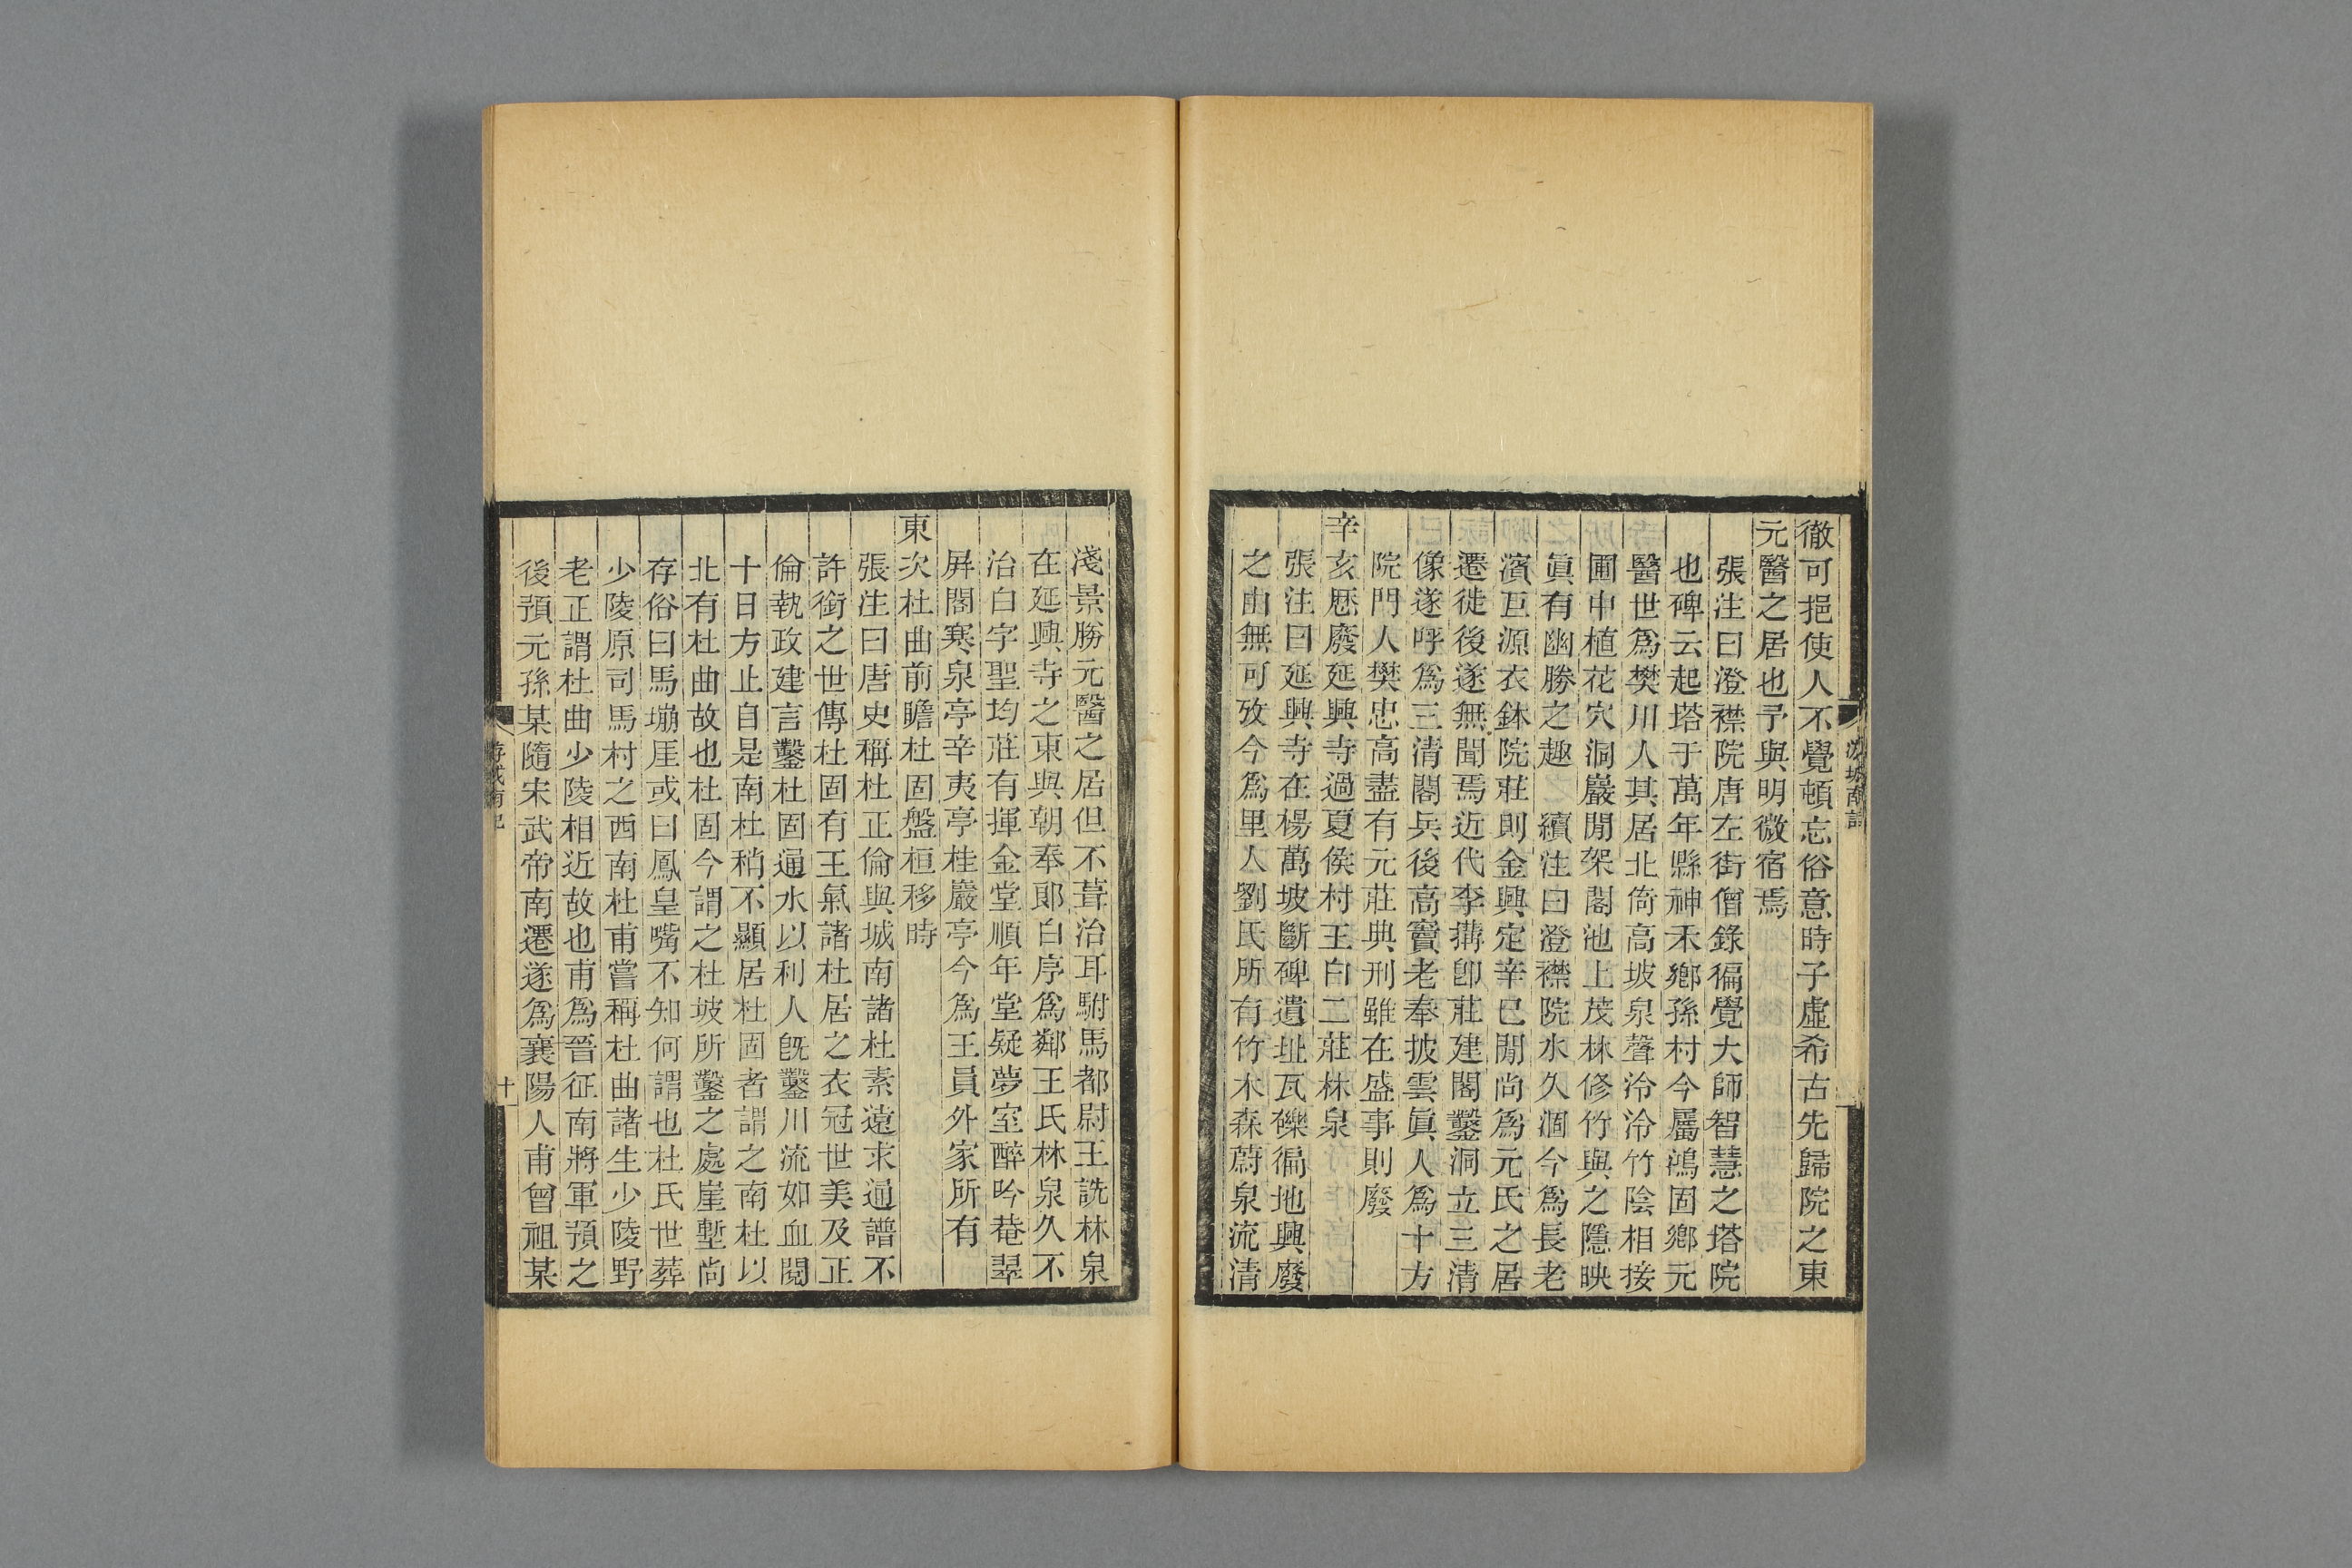 徹可挹使人不覺頓忘俗意時子虛希古先歸院之東
元醫之居也予與明微宿焉
張注曰澄襟院唐左街僧錄徧覺大師智慧之塔院
也碑云起塔于萬年縣神禾鄉孫村今屬鴻固鄉元
醫世爲樊川人其居北倚高坡泉聲泠泠竹陰相接
圃中植花穴洞巖閒架閣池上茂林修竹與之隱映
眞有幽勝之趣續注曰澄襟院水久涸今爲長老
濱亙源衣鉢院莊則金興定辛巳閒尚爲元氏之居
遷徙後遂無聞焉近代李搆卽莊建閣鑿洞立三清
像遂呼爲三清閣兵後高竇老奉披雲眞人爲十方
院門人樊忠高盡有元莊典刑雖在盛事則廢
辛亥厯廢延興寺過夏侯村王白二莊林泉
張注曰延興寺在楊萬坡斷碑遺址瓦礫徧地興廢
之由無可攷今爲里人劉氏所有竹木森蔚泉流清
淺景勝元醫之居但不葺治耳駙馬都尉王詵林泉
在延興寺之東與朝奉郞白序爲鄰王氏林泉久不
治白字聖均莊有揮金堂順年堂疑夢室醉吟菴翠
屛閣寒泉亭辛夷亭桂巖亭今爲王員外家所有
東次杜曲前瞻杜固盤桓移時
張注曰唐史稱杜正倫與城南諸杜素遠求通譜不
許銜之世傳杜固有王氣諸杜居之衣冠世美及正
倫執政建言鑿杜固通水以利人旣鑿川流如血閱
十日方止自是南杜稍不顯居杜固者謂之南杜以
北有杜曲故也杜固今謂之杜坡所鑿之處崖塹尙
存俗曰馬塴厓或曰鳳皇嘴不知何謂也杜氏世葬
少陵原司馬村之西南杜甫嘗稱杜曲諸生少陵野
老正謂杜曲少陵相近故也甫爲晉征南將軍預之
後預元孫某隨宋武帝南遷遂爲襄陽人甫曾祖某
十一